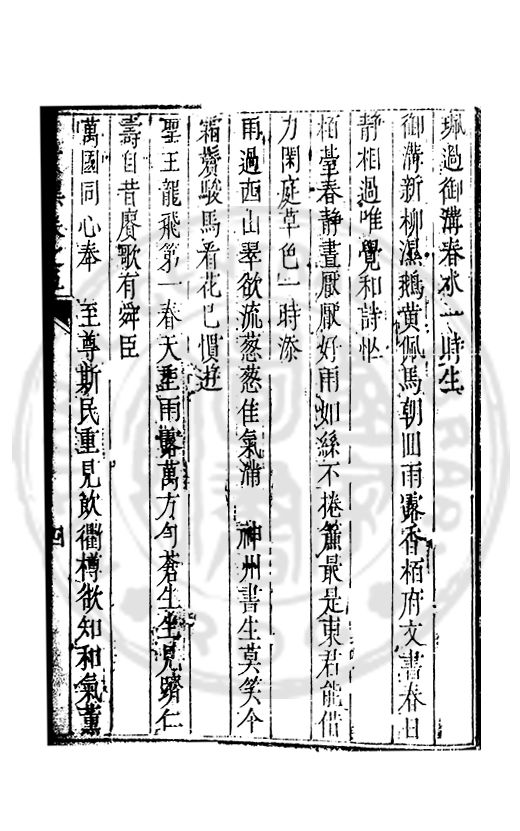 珮過御溝春水一時生
御溝新柳濕鵝黄佩馬朝回雨露香栢府文書春日
静相過唯覺和詩忙
栢臺春静晝厭厭好雨如絲不捲簾最是東君能借
力閑庭草色一時添
雨過西山翠欲流葱葱佳氣滿 神州書生莫笑今
霜鬢駿馬看花已慣遊
聖王龍飛第一春天垂雨露萬方勻蒼生坐見躋仁
壽自昔賡歌有舜臣
萬國同心奉 至尊斯民重見飲衢樽欲知和氣薰
卷之五
四